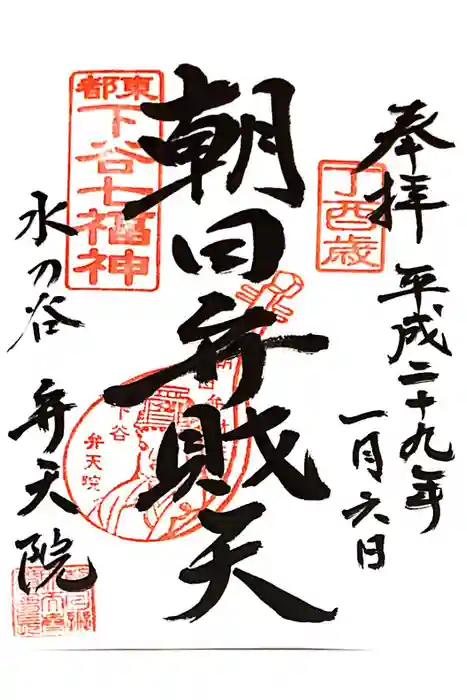 奉拝
丁酉歳
平成二十九年
一月六日
朝日弁財天
東都
下谷七福神
下谷
弁天院
水の谷
弁天院